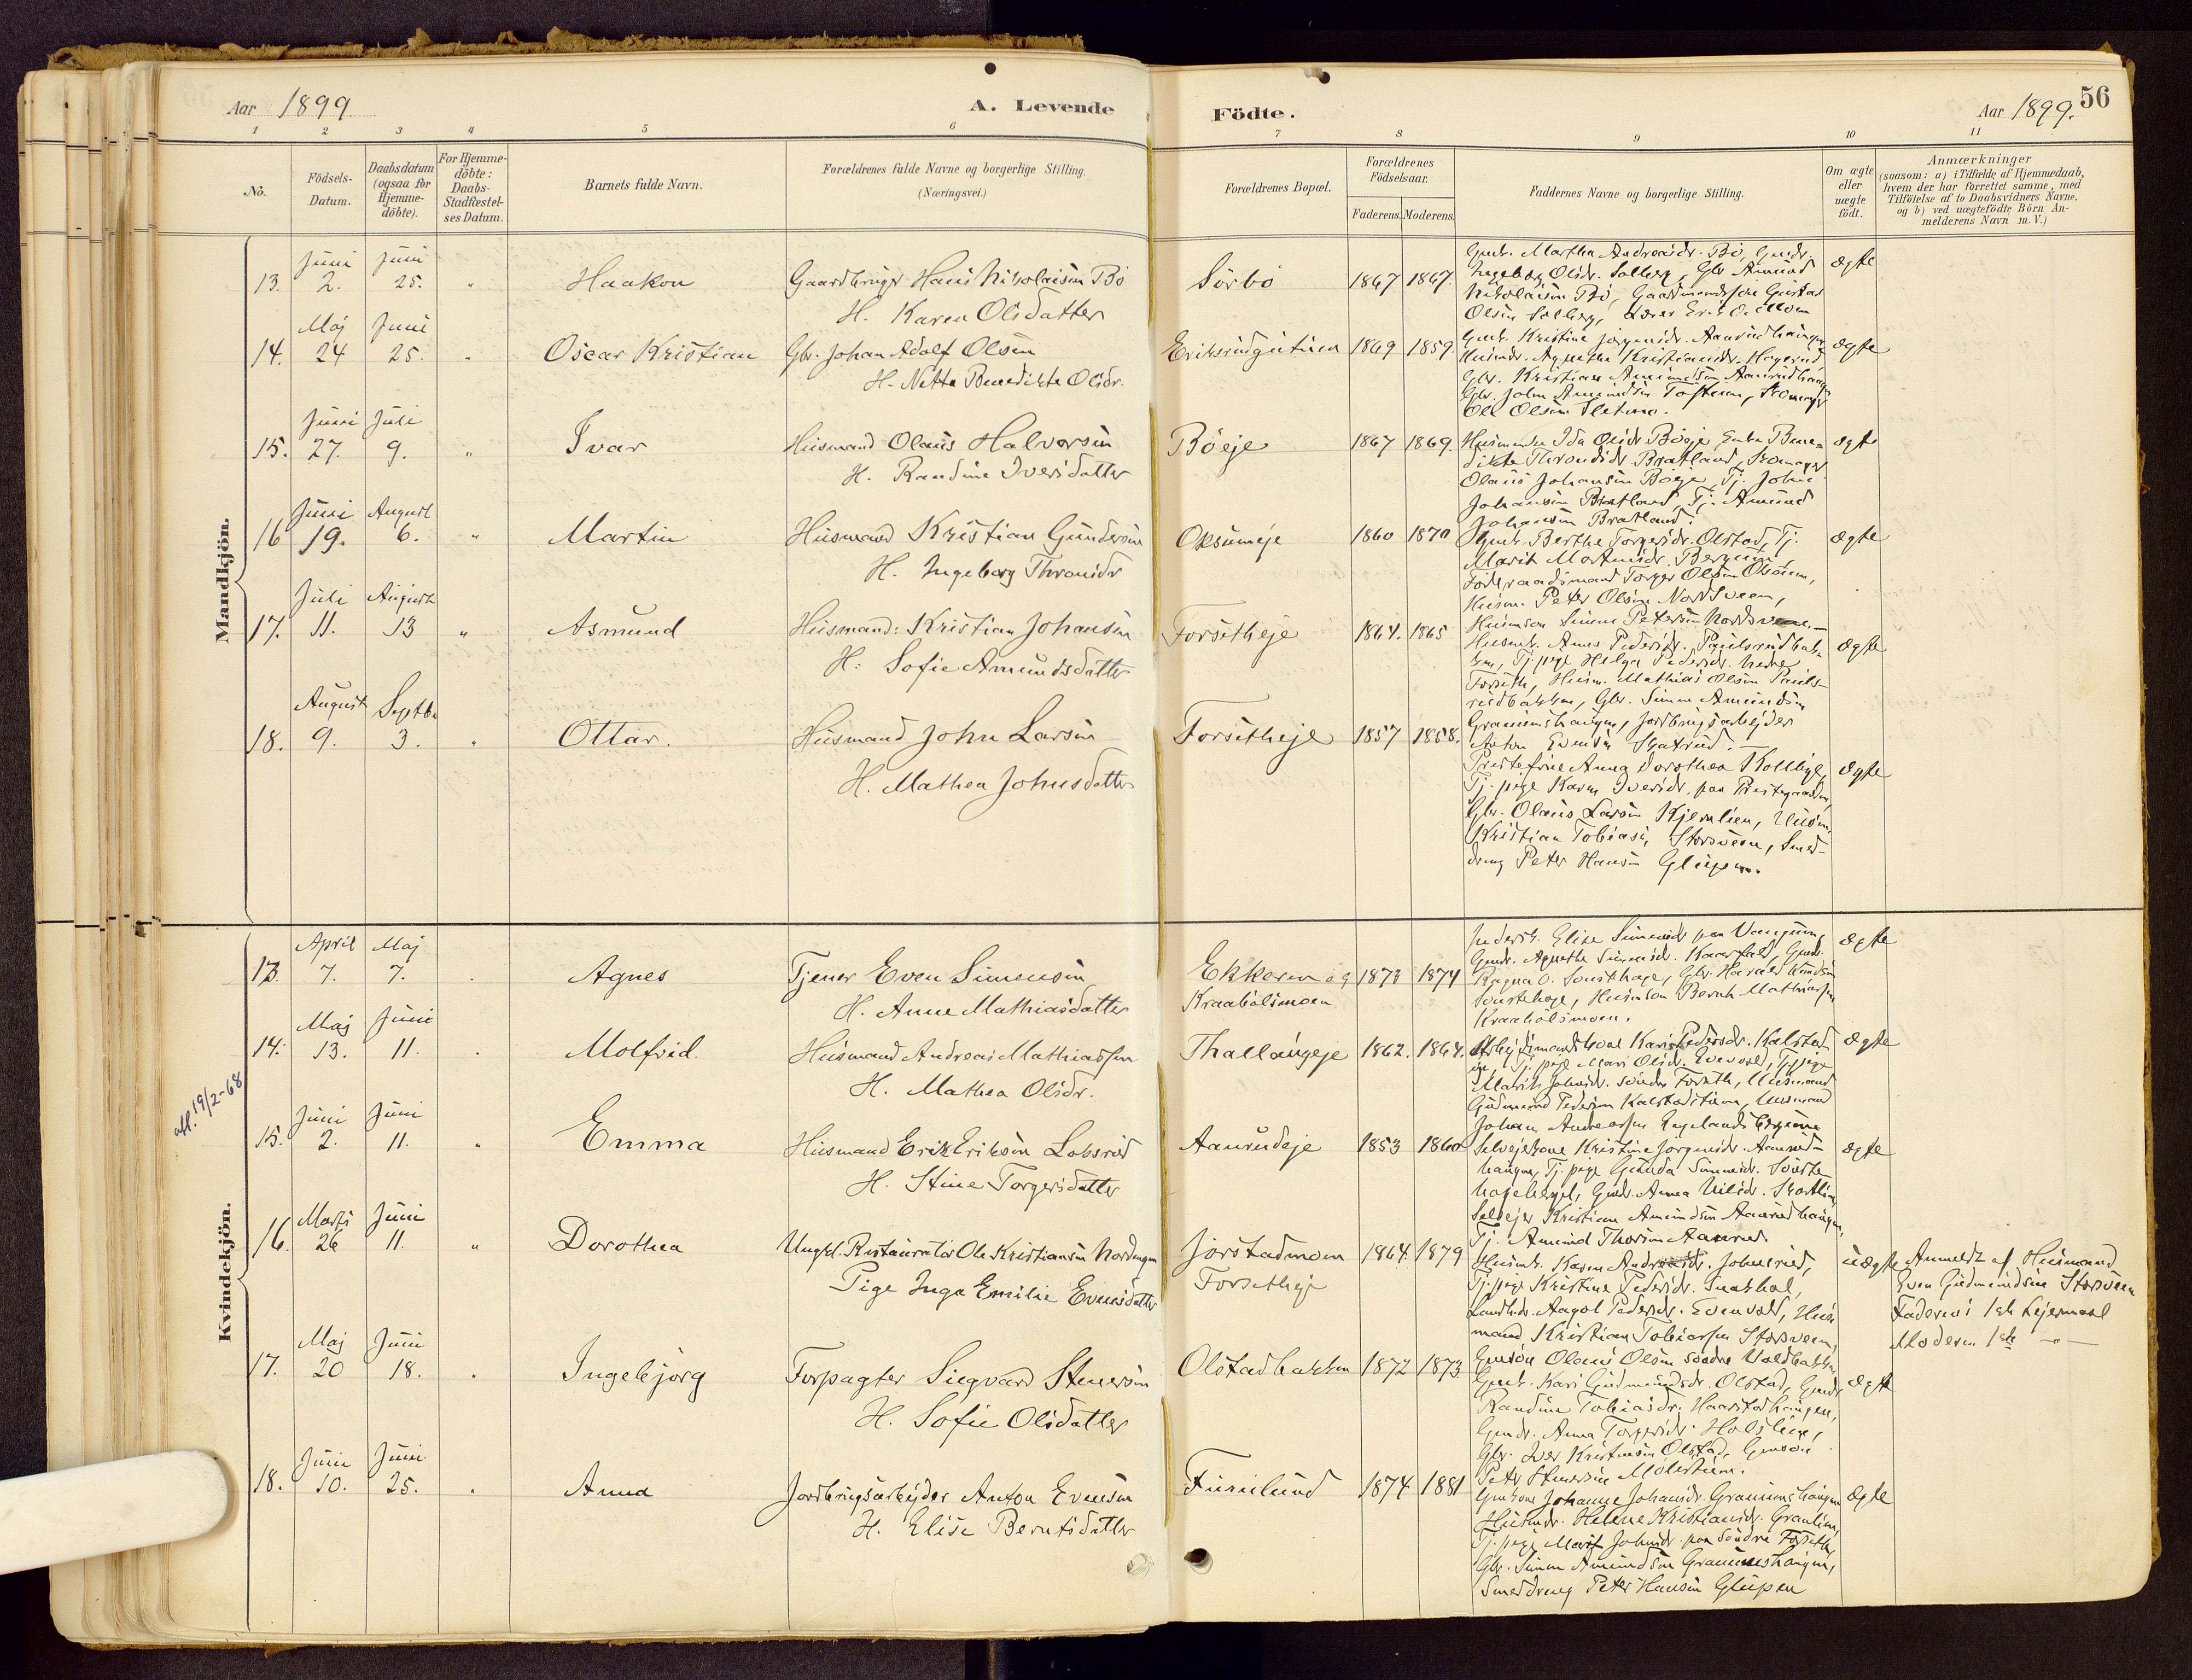 Aar 1899
A. Levende
Födte.
Aar 1899.
56
1 2 3 4 5 6 7 8 9 10 11
No.
Födsels-Datum.
Daabsdatum (ogsaa for Hjemme-döbte).
For Hjemme-döbte: Daabs-Stadfæstel-ses Datum.
Barnets fulde Navn.
Forældrenes fulde Navne og borgerlige Stilling. (Næringsvei.)
Forældrenes Bopæl.
Forældrenes Födselsaar.
Faderens. Moderens.
Faddernes Navne og borgerlige Stilling.
Om ægte eller uægte födt.
Anmærkninger
(saasom: a) i Tilfælde af Hjemmedaab, hvem der har forrettet samme, med Tilföielse af to Daabsvidners Navne, og b) ved uægtefödte Börn An-melderens Navn m. V.)
Mandkjön.
13. Juni 2. Juni 25. " Haakon Gaardbruger Hans Nikolaisen Bö
H. Karen Olsdatter
Sörbö 1867 1867. ægte
Gmdr. Martha Andreasdr. Bö, Gmdr.
Ingeborg Olsdr. Solberg, Gbr Amund
Nikolaisen Bö, Gaardmandssön Gustav
Olsen Solberg, Lærer Erik O.
14. Maj 24 Juni 25. " Oscar Kristian Gbr. Johan Adolf Olsen
H. Netta Benedikte Olsdr.
1869 1859. ægte
Gmk. Kristine Jörgensdr. Aanrudhaugen
Husmdr. Agnethe Kristiansdr.
Gbr. Kristian Amundsen Aanrudhaugen
Gbr. John Amundsen Skomager
Ole Olsen
15. Juni 27. Juli 9. " Ivar Husmand Olaus Halvorsen
H. Randine Iversdatter
Böeje 1867 1869. ægte
Ida Olsdr. Böeje, Bene-
dikte Throndsdr Bratland, Skomager
Olaus Johansen Böeje, Tj. Johan
Johansen Bratland, Tj. Amund
Johansen Bratland.
16 Juni 19. August 6. " Martin Husmand Kristian Gundersen
H. Ingeborg Thronsdr
Olsumeje 1860 1870 ægte
Gmdr. Berthe Torgersdr. Olstad, Tj.
Marit Mortensdr.
Föderaadsmand Torger Olsen Olsum,
Husm. Peter Olsen Nordsveen,
Husmson Simen Petersen Nordsveen.
17. Juli 11. August 13 " Asmund Husmand: Kristian Johansen
H: Sofie Amundsdatter
Forsetheje 1864. 1865 ægte
Husmk. Anne Pedersdr. Paulsrudbak-
ken, Tj.pige Helga Pedersdr. nedre
Forseth, Husm. Mathias Olsen Pauls-
rudbakken, Gbr. Simen Amundsen
Graunenshaugen, Jordbrugsarbejder
Anton Evensen
18. August 9. Septbr 3. " Ottar. Husmand John Larsen
H. Mathea Johnsdatter
Forsetheje 1857 1858. ægte
Prestefrue Anna Dorothea
Tj. pige Karen Iversdr. paa Prestegaarden,
Gbr. Olaus Larsen Kjernlien, Husm.
Kristian Tobiass. Storsveen, Smed-
dreng Peter Hansen Glupen.
Kvindekjön.
13. April 7. Maj 7. " Agnes Tjener Even Simensen
H. Anne Mathiasdatter
Ekkeren og Kraabölsmoen 1873 1874 ægte
Elise Simensdr
Gmdr. Agnethe Simensdr.
Ragna O. Sonstehage, Gbr. Harald Knudsen
Sonstehage, Husmson Bernh. Mathiassen
Kraabölsmoen.
14. Maj 13. Juni 11. " Molfrid. Husmand Andreas Mathiassen
H. Mathea Olsdr.
Thallaugeje 1862. 1864. ægte
Kari Pedersdr. Kalstad-
eje, Tj. pige Mari Olsdr. Evenvold, Tj.pige
Marit Johnsdr. söndre Forseth, Husmand
Gudmund Pedersen Husmand
Johan Andreassen
aff. 19/2-68
15. Juni 2. Juni 11. " Emma Husmand Erik Eriksen Lobsrud
H. Stine Torgersdatter
Aanrudeje 1853 1860 ægte
Selvejerkone Kristine Jörgensdr. Aanrud-
haugen, Tj. pige Gunda Simensdr. Sonste-
Gmdr. Anna Nilsdr.
Selvejer Kristian Amundsen Aanrudhaugen,
Tj. Amund Thorsen Aanrud.
16. Marts 26 Juni 11. " Dorothea Ungkl. Restauratör Ole Kristiansen Nordengen
Pige Inga Emilie Evensdatter
Jörstadmoen
Forsetheje
1864. 1879 uægte
Husmk. Karen Andreasdr.
Tj.pige Kristine Pedersdr.
Aagot Pedersdr. Evenvold, Hus-
mand Kristian Tobiassen Storsveen,
Gmsön Olaus Olsen söndre Voldbakken
Anmeldt af Husmand
Even Gudmundsen Storsveen
Faderens 1ste Lejermaal
Moderen 1ste —"—
17. Maj 20 Juni 18. " Ingebjörg Forpagter Siegvard Stenersen
H. Sofie Olsdatter
Olstadbakken 1872 1873. ægte
Gmk. Kari Gudmundsdr. Olstad, Gmdr.
Randine Tobiasdr.
Gmdr. Anna Torgersdr.
Gbr. Iver Kristensen Olstad, Gmsön
Peter Stenersen
18. Juni 10. Juni 25. " Anna Jordbrugsarbejder Anton Evensen
H. Elise Berntsdatter
Furulund 1874 1881 ægte
Gmkone Johanne Johansdr. Graunenshaugen
Husmdr. Helene Kristiansdr. Granlien,
Tj. pige Marit Johnsdr. paa Söndre Forseth,
Gbr. Simen Amundsen Graunenshaugen,
Smeddreng Peter Hansen Glupen